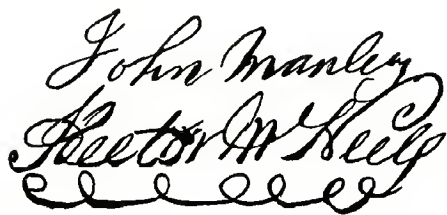 John Manley
Hector McNeill